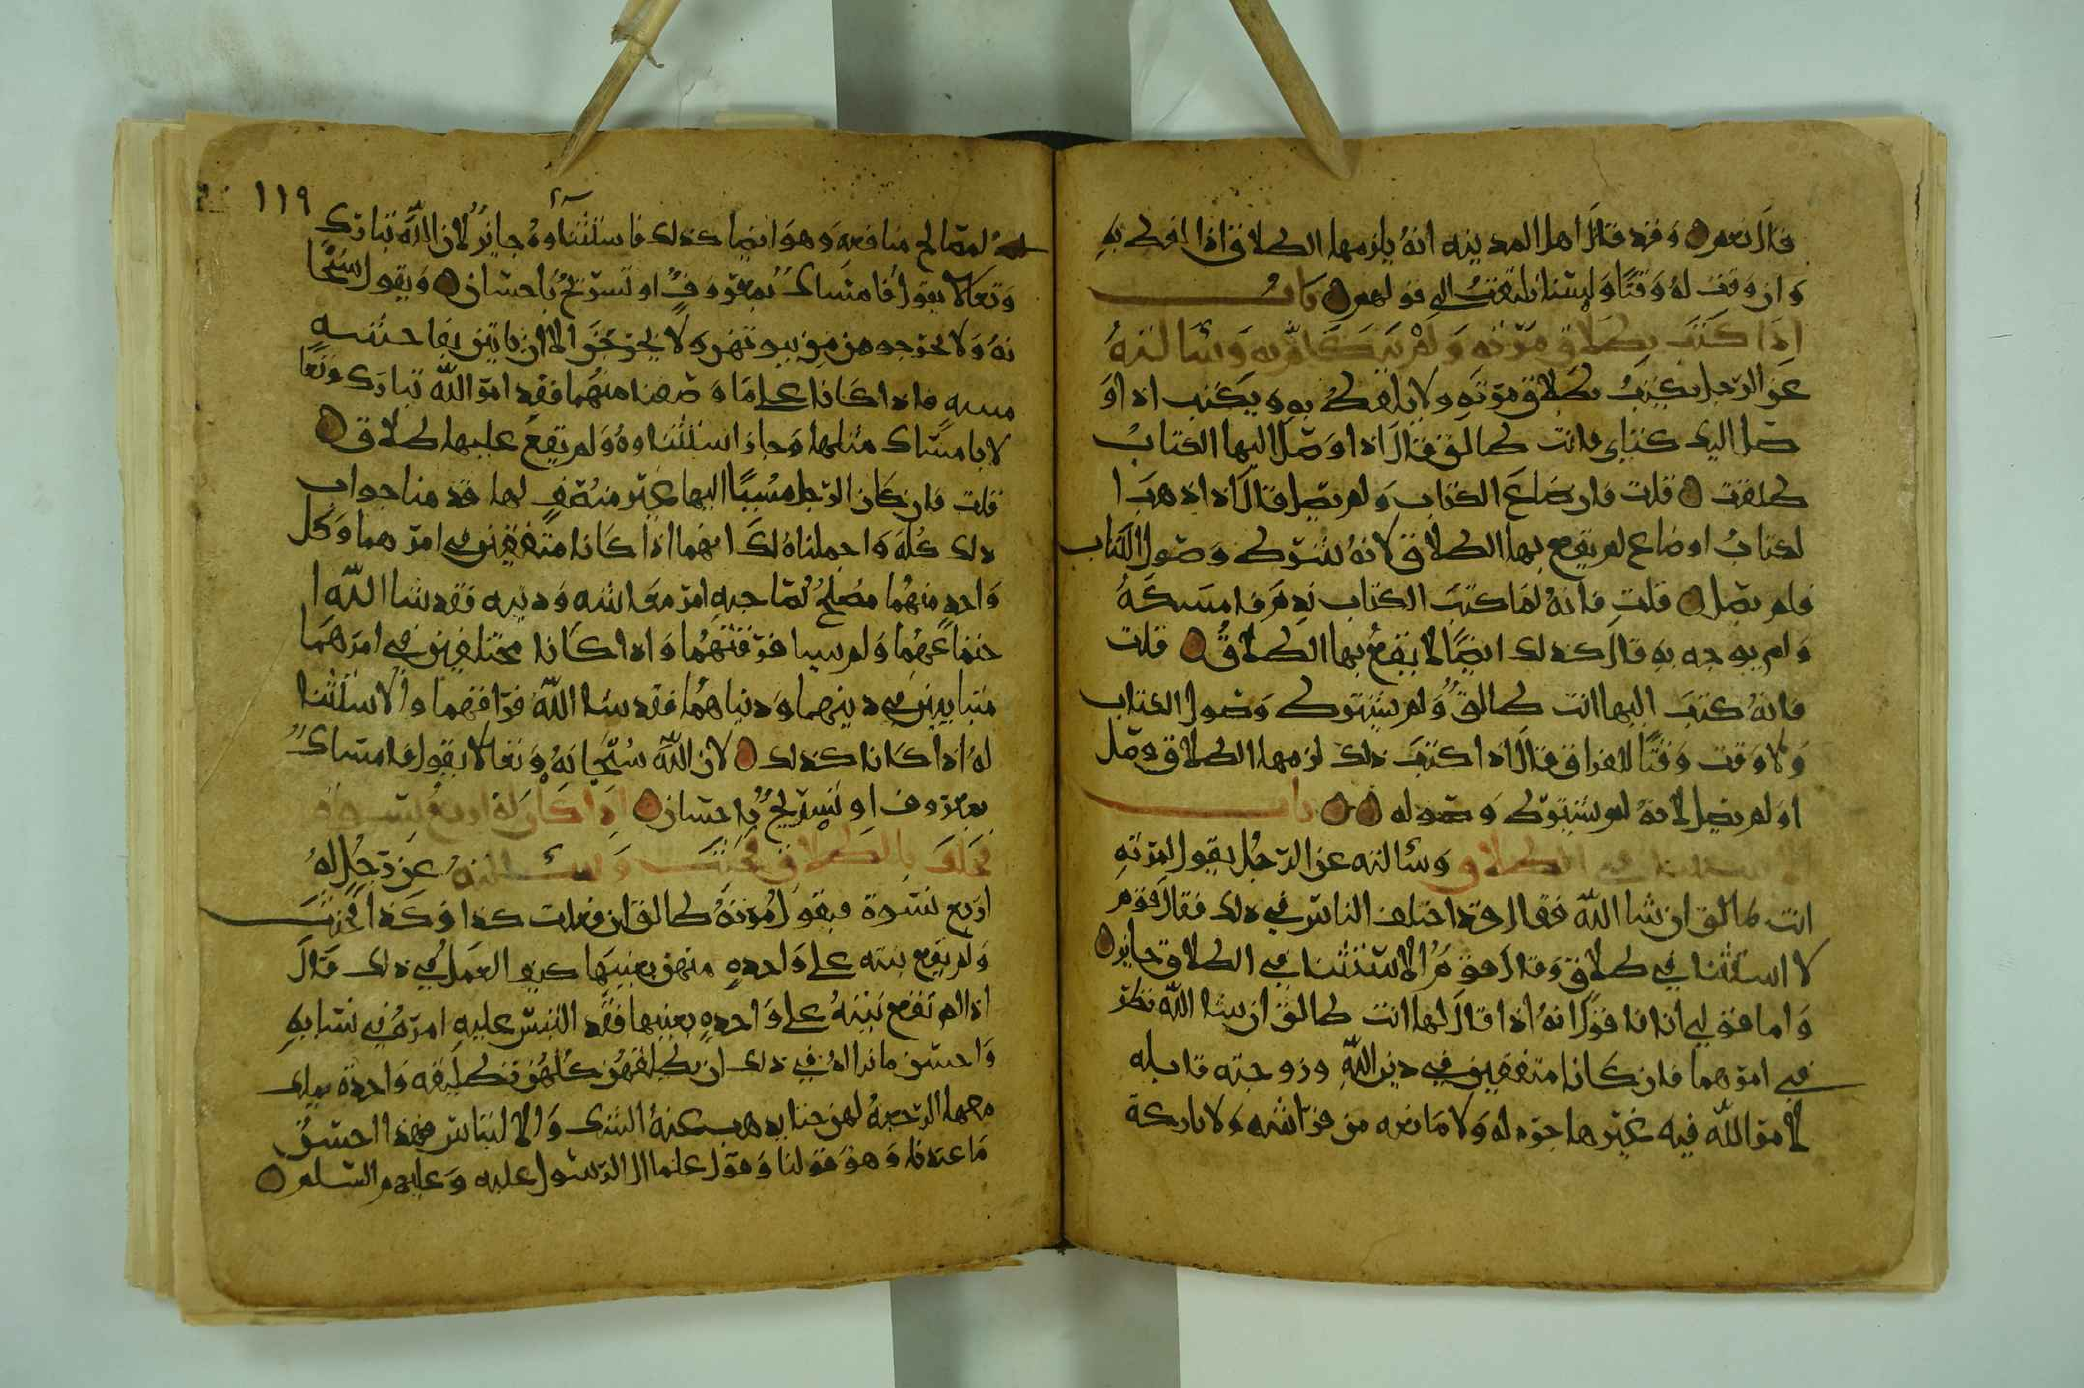 قال نعم وقد قال اهل المدينه انه يلزمها الطلاق اذا لفظ به
وان وقف له وقتا ولسنا نلتفت الى قولهم باب
اذا كتب بطلاق مرته ولم وسالته
عن الرجل يكتب بطلاق مرته ولا يلفظ به ويكتب اذا و
صل اليك كتابي فانت طالق فقال اذا وصل اليها الكتاب
طلقت قلت فان ضاع الكتاب ولم يصل قال اذا ذهب ا
لكتاب او ضاع لم يقع بها الطلاق لانه شرط وصول الكتاب
فلم يصل قلت فانه لما كتب الكتاب ندم فامسكه
ولم يوجه به قال كذلك ايضا لا يقع بها الطلاق قلت
فانه كتب اليها انت طالق ولم يشترط وصول الكتاب
ولا وقت وقتا للفراق فقال اذا كتب ذلك لزمها الطلاق وصل
او لم يصل لانه لم يشترط وصوله باب
الاستثنا في الطلاق وسالته عن الرجل يقول لمرته
انت طالق ان شا الله فقال قد اختلف الناس في ذلك فقال قوم
لا استثنا في طلاق وقال قوم الاستثنا في الطلاق جايز
واما قولي انا فهو انه اذا قال لها انت طالق ان شا الله نظر
في امرهما فان كانا متفقين في دين الله وزوجته قابله
لامر الله فيه غير هاجره له ولا مانعه من فراشه ولا تاركة
١١٩
لمصالح منافعه وهو ايضا كذلك فاستثناوه جايز لان الله تبارك
وتعالا يقول فامساك بمعروف او تسريح باحسان ويقول سبحا
نه ولا تخرجوهن من بيوتهن ولا يخرجن الا ان ياتين بفاحشه
مبينه فاذا كانا على ما وصفنا منهما فقد امر الله تبارك وتعا
لا بامساك مثلها وجاز استثناوه ولم يقع عليها طلاق
قلت فان كان الرجل مسيا اليها غير منصف لها قد منا جواب
ذلك كله واجملناه لك انهما اذا كانا متفقين في امرهما وكل
واحد منهما مصلح لصاحبه امر معاشه ودينه فقد شا الله ا
جتماعهما ولم يشا فرقتهما واذا كانا مختلفين في امرهما
متباينين في دينهما ودنياهما فقد شا الله فراقهما ولا استثنا
له اذا كانا كذلك لان الله سبحانه وتعالا يقول فامساك
بمعروف او تسريح باحسان اذا كان له اربع نسوة
فحلف بالطلاق فحنث وسالته عن رجل له
اربع نسوة فيقول مرته طالق ان فعلت كذا وكذا فحنث
ولم يقع نيته على واحده منهن بعينها كيف العمل في ذلك قال
اذا لم تقع نيته على واحده بعينها فقد التبس عليه امره في نسايه
واحسن ما نراه في ذلك ان يطلقهن كلهن تطليقه واحدة
معها الرجعة لهن الشك والالتباس فهذا احسن
ما عندنا وهو قولنا وقول علما ال الرسول عليه وعليهم السلم